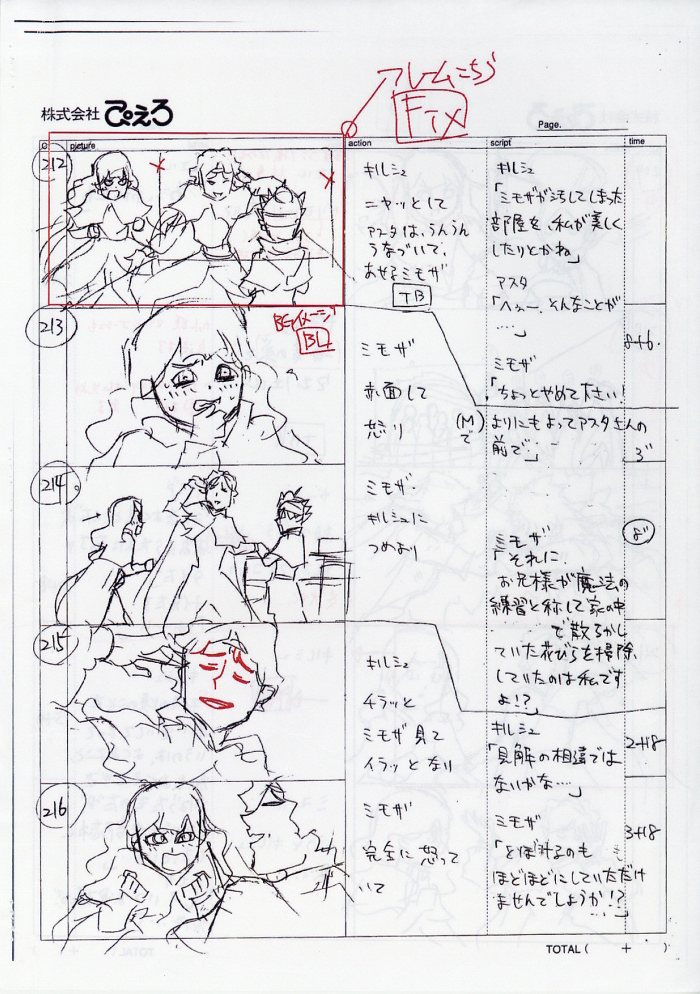 フレームこちら
FIX
株式会社 ぴえろ
Page.
C
picture
action
script
time
212
キルシュ
ニヤッとして
アスタは、うんうん
うなづいて、
あせるミモザ
TB
キルシュ
「ミモザが汚してしまった
部屋を、私が美しく
したりとかね」
アスタ
「へぇー、そんなことが
‥‥」
ミモザ
「ちょっとやめて下さい!
213
BGイメージ
BL
ミモザ
赤面して
怒り
(M)で
よりにもよってアスタさんの
前で」
3"
214
ミモザ、
キルシュに
つめより
ミモザ
「それに、
お兄様が魔法の
練習と称して家の中
で散らかし
ていた花びらを掃除
していたのは私です
よ!?」
215
キルシュ
チラッと
ミモザ見て
イラッとなり
キルシュ
「見解の相違では
ないかな‥‥」
2+18
216
ミモザ
完全に怒って
いて
ミモザ
「とぼけるのも
ほどほどにしていただけ
ませんでしょうか!?
‥‥」
3+18
TOTAL ( + )